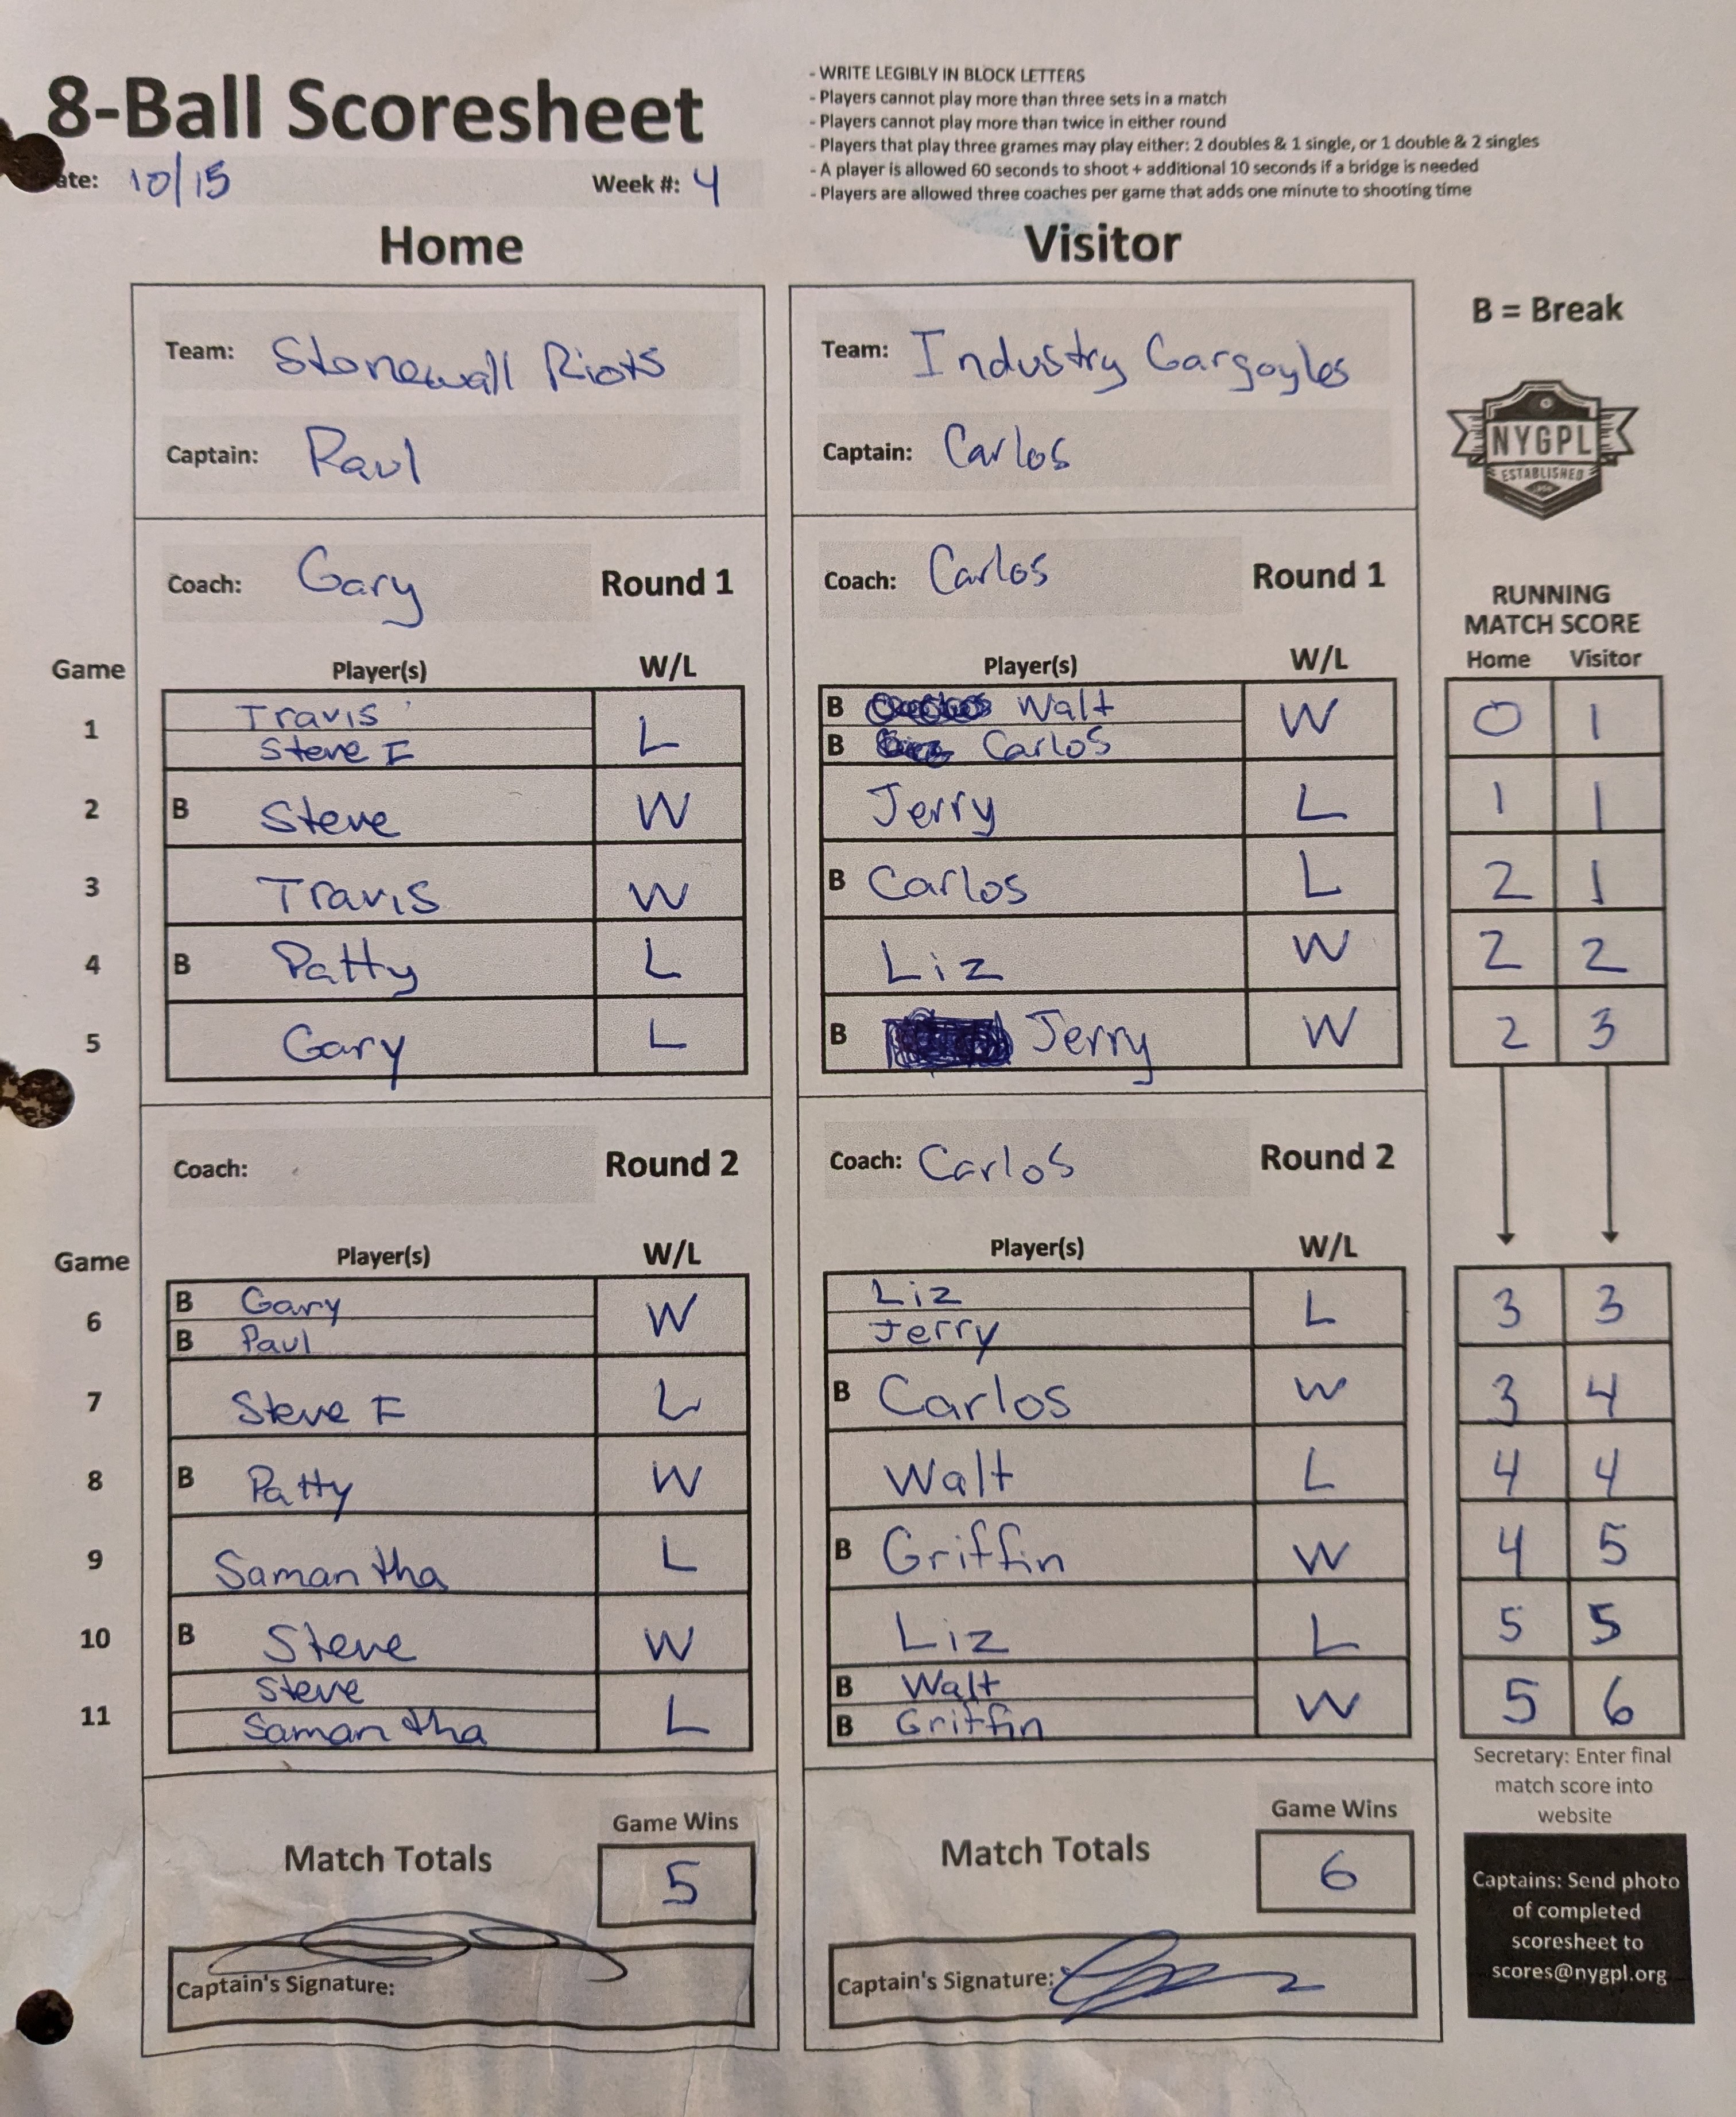 8-Ball Scoresheet
- WRITE LEGIBLY IN BLOCK LETTERS
- Players cannot play more than three sets in a match
- Players cannot play more than twice in either round
- Players that play three grames may play either: 2 doubles & 1 single, or 1 double & 2 singles
- A player is allowed 60 seconds to shoot + additional 10 seconds if a bridge is needed
- Players are allowed three coaches per game that adds one minute to shooting time
ate: 10/15 Week #: 4
Home
Team: Stonewall Riots
Captain: Paul
Coach: Gary Round 1
Game Player(s) W/L
1 Travis L
Steve F
2 B Steve W
3 Travis W
4 B Patty L
5 Gary L
Coach: Round 2
Game Player(s) W/L
6 B Gary W
B Paul
7 Steve F L
8 B Patty W
9 Samantha L
10 B Steve W
11 Steve L
Samantha
Match Totals Game Wins 5
Captain's Signature:
Visitor
Team: Industry Gargoyles
Captain: Carlos
Coach: Carlos Round 1
Player(s) W/L
B Walt W
B Carlos
Jerry L
B Carlos L
Liz W
B Jerry W
Coach: Carlos Round 2
Player(s) W/L
Liz L
Jerry
B Carlos W
Walt L
B Griffin W
Liz L
B Walt W
B Griffin
Match Totals Game Wins 6
Captain's Signature:
B = Break
NYGPL
ESTABLISHED
RUNNING
MATCH SCORE
Home Visitor
0 1
1 1
2 1
2 2
2 3
3 3
3 4
4 4
4 5
5 5
5 6
Secretary: Enter final
match score into
website
Captains: Send photo
of completed
scoresheet to
scores@nygpl.org